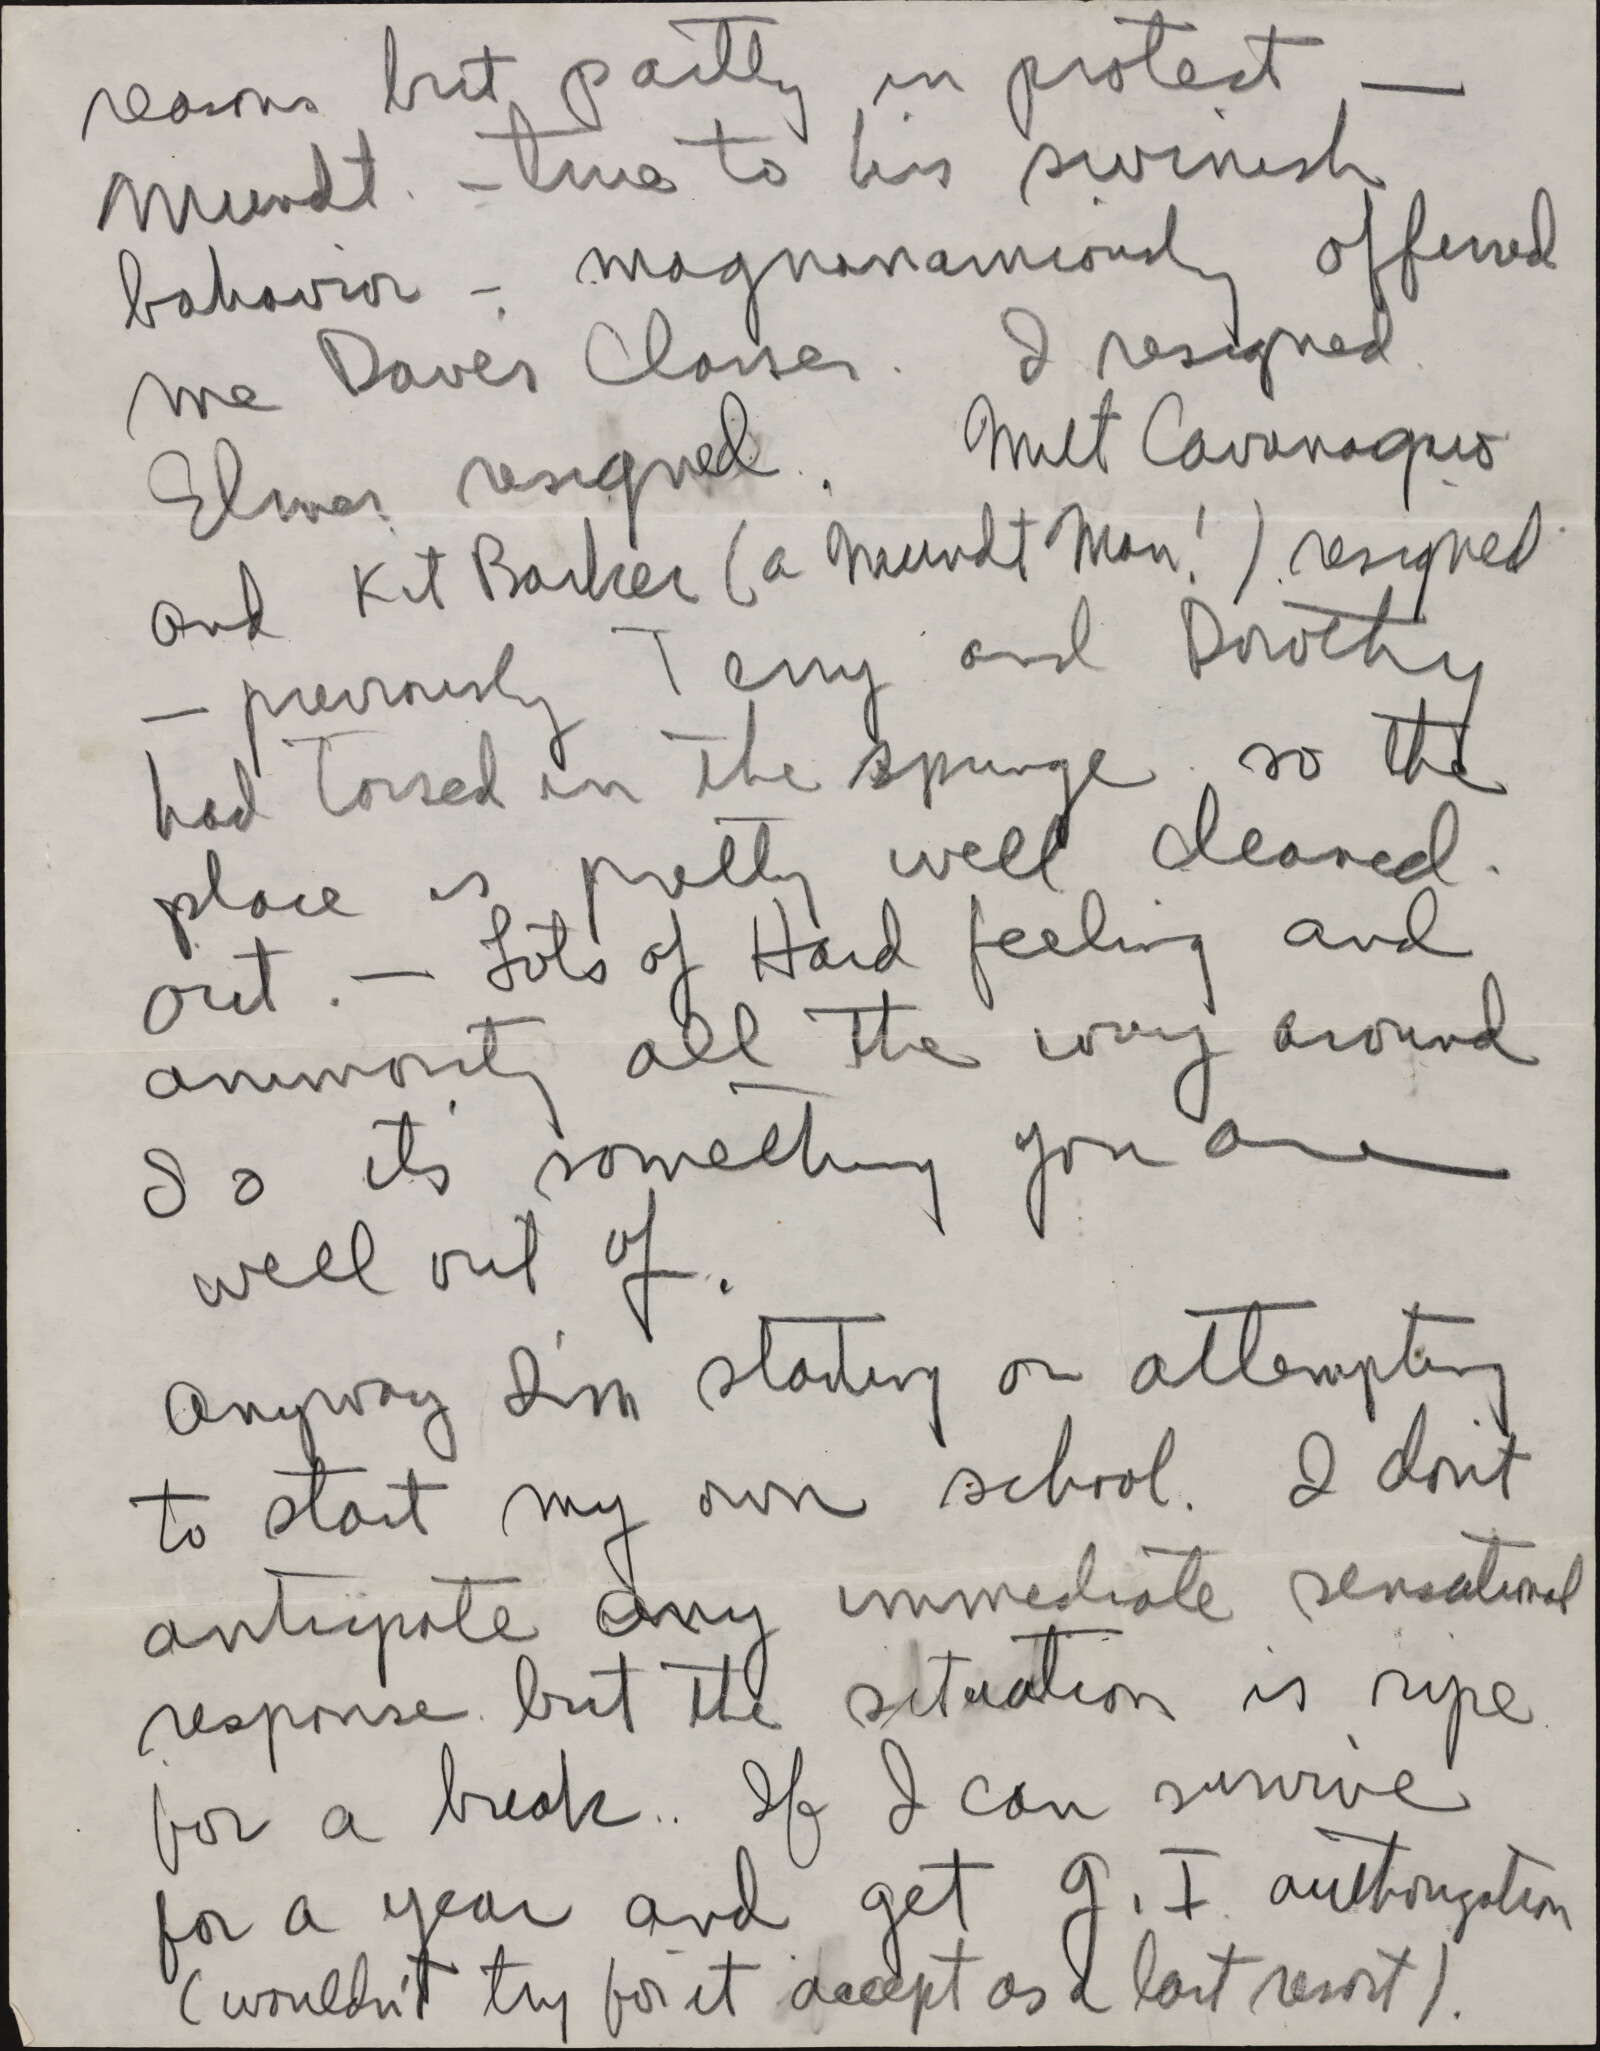 reasons but partly in protest —
Mundt. – true to his swinish
behavior – magnanamiously offered
me Daves Classes. I resigned
Elmer resigned. Milt Cavanagus
and Kit Barker (a Mundt Man!) resigned
— previously Terry and Dorothy
had tossed in the spunge so the
place is pretty well cleaned.
out. — Lots of Hard feeling and
animosity all the way around
So it's something you are
well out of.
Anyway I'm starting or attempting
to start my own school. I don't
anticipate any immediate sensational
response but the situation is ripe
for a break.. If I can survive
for a year and get G.I. authorization
(wouldn't try for it accept as a last resort).